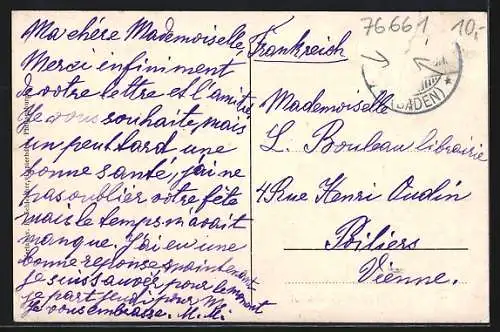 76661 10,-
Ma chére Mademoiselle,
Merci infiniment
de votre lettre et l'amitié
Je vous souhaite, mais
un peu tard une
bonne santé, j'ai ne
pas oublier votre fête
mais le temps m'avait
manque. J'ai eu une
bonne reponse maintenant
je suis sauvée pour le moment
je part jeudi pour M.
Je vous embrasse.
Frankreich
(BADEN) *
Mademoiselle
L. Bouleau libraire
4 Rue Henri Oudin
Poiliers
Vienne.